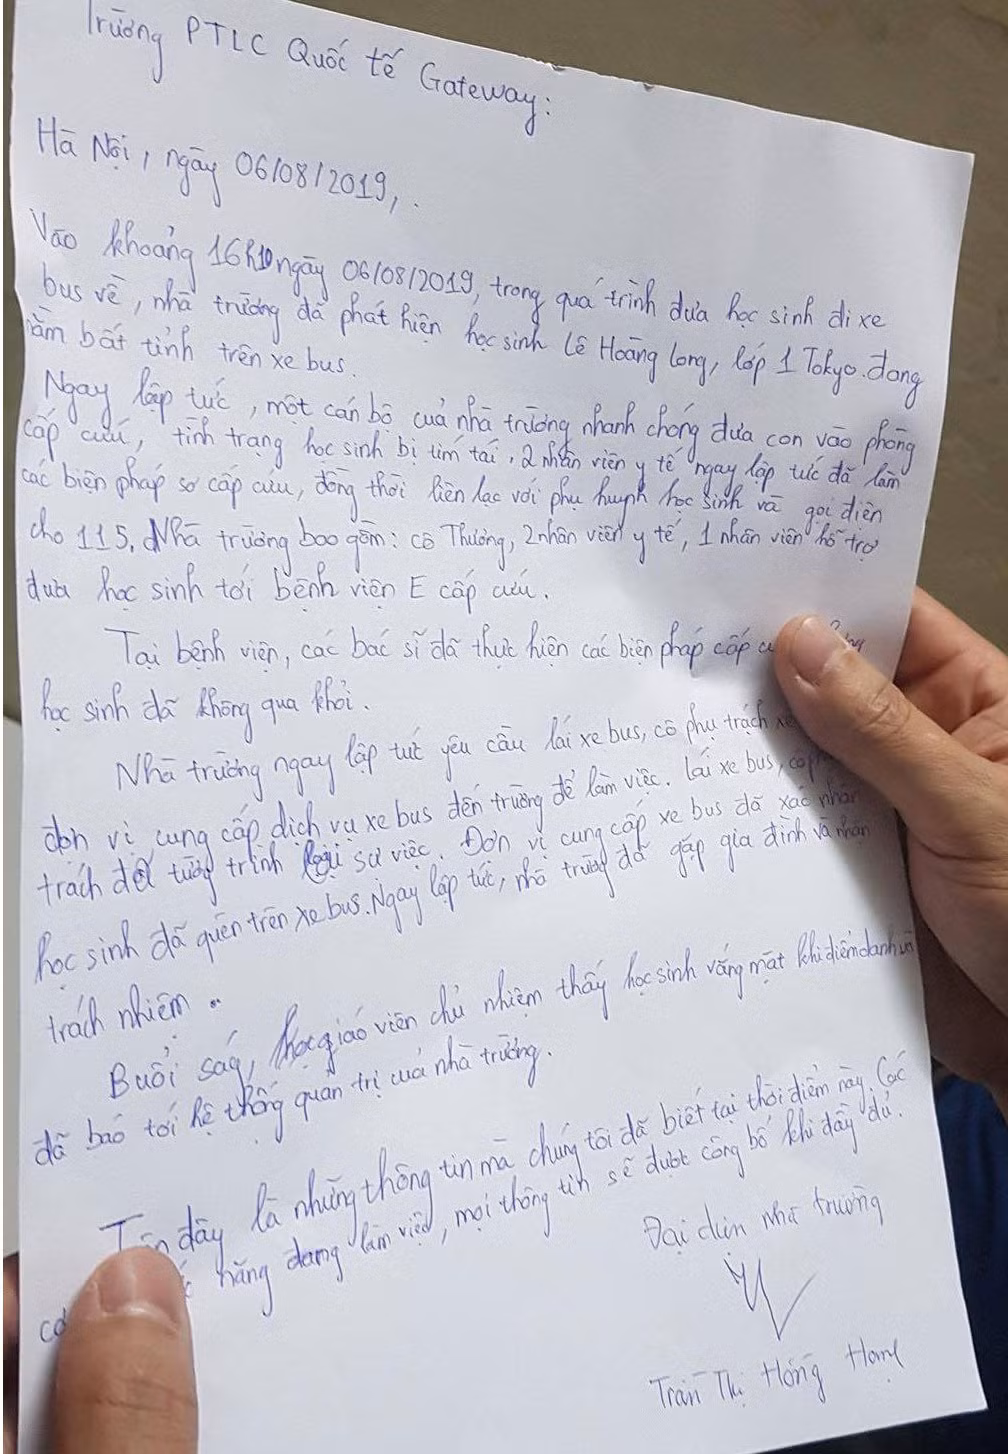 Trường PTLC Quốc tế Gateway:
Hà Nội, ngày 06/08/2019,.
Vào khoảng 16h10 ngày 06/08/2019, trong quá trình đưa học sinh đi xe
bus về, nhà trường đã phát hiện học sinh Lê Hoàng Long, lớp 1 Tokyo. đang
nằm bất tỉnh trên xe bus.
Ngay lập tức, một cán bộ của nhà trường nhanh chóng đưa con vào phòng
cấp cứu, tình trạng học sinh bị tím tái. 2 nhân viên y tế ngay lập tức đã làm
các biện pháp sơ cấp cứu, đồng thời liên lạc với phụ huynh học sinh và gọi điện
cho 115. Nhà trường bao gồm: cô Thương, 2 nhân viên y tế, 1 nhân viên hỗ trợ
đưa học sinh tới bệnh viện E cấp cứu.
Tại bệnh viện, các bác sĩ đã thực hiện các biện pháp cấp
học sinh đã không qua khỏi.
Nhà trường ngay lập tức yêu cầu lái xe bus, cô phụ trách
đơn vị cung cấp dịch vụ xe bus đến trường để làm việc. Lái xe bus,
trách đã tường trình lại sự việc. Đơn vị cung cấp xe bus đã xác nhận
học sinh đã quên trên xe bus. Ngay lập tức, nhà trường đã gặp gia đình và nhận
trách nhiệm.
Buổi ság, giáo viên chủ nhiệm thấy học sinh vắng mặt khi điểm danh và
đã báo tới hệ thống quản trị của nhà trường.
đây là những thông tin mà chúng tôi đã biết tại thời điểm này. Các
năng đang làm việc, mọi thông tin sẽ được công bố khi đầy đủ.
Đại diện nhà trường
Trần Thị Hồng Hạnh